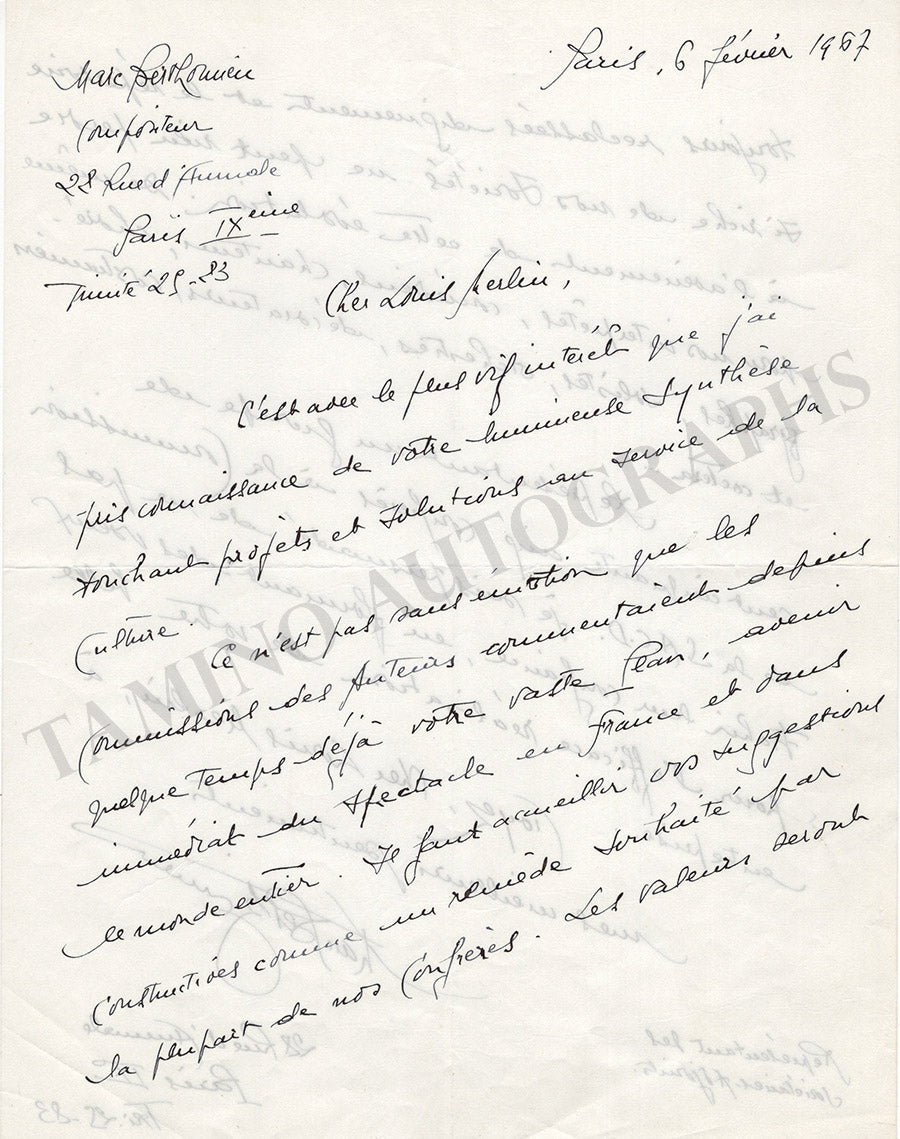 Marc Berthomieu
Compositeur
28 Rue d'Aumale
Paris IXeme
Trinité 25-83
Paris, 6 février 1967
Cher Louis Merlin,
C'est avec le plus vif intérêt que j'ai
pris connaissance de votre lumineuse synthèse
touchant projets et solutions au service de la
Culture.
Ce n'est pas sans émotion que les
Commissions des Auteurs commentaient depuis
quelque temps déjà votre vaste plan, avenir
immédiat du Spectacle en France et dans
le monde entier. Il faut accueillir vos suggestions
constructives comme un remède souhaité par
la plupart de nos Confrères. Les valeurs seront
TAMINO AUTOGRAPHS